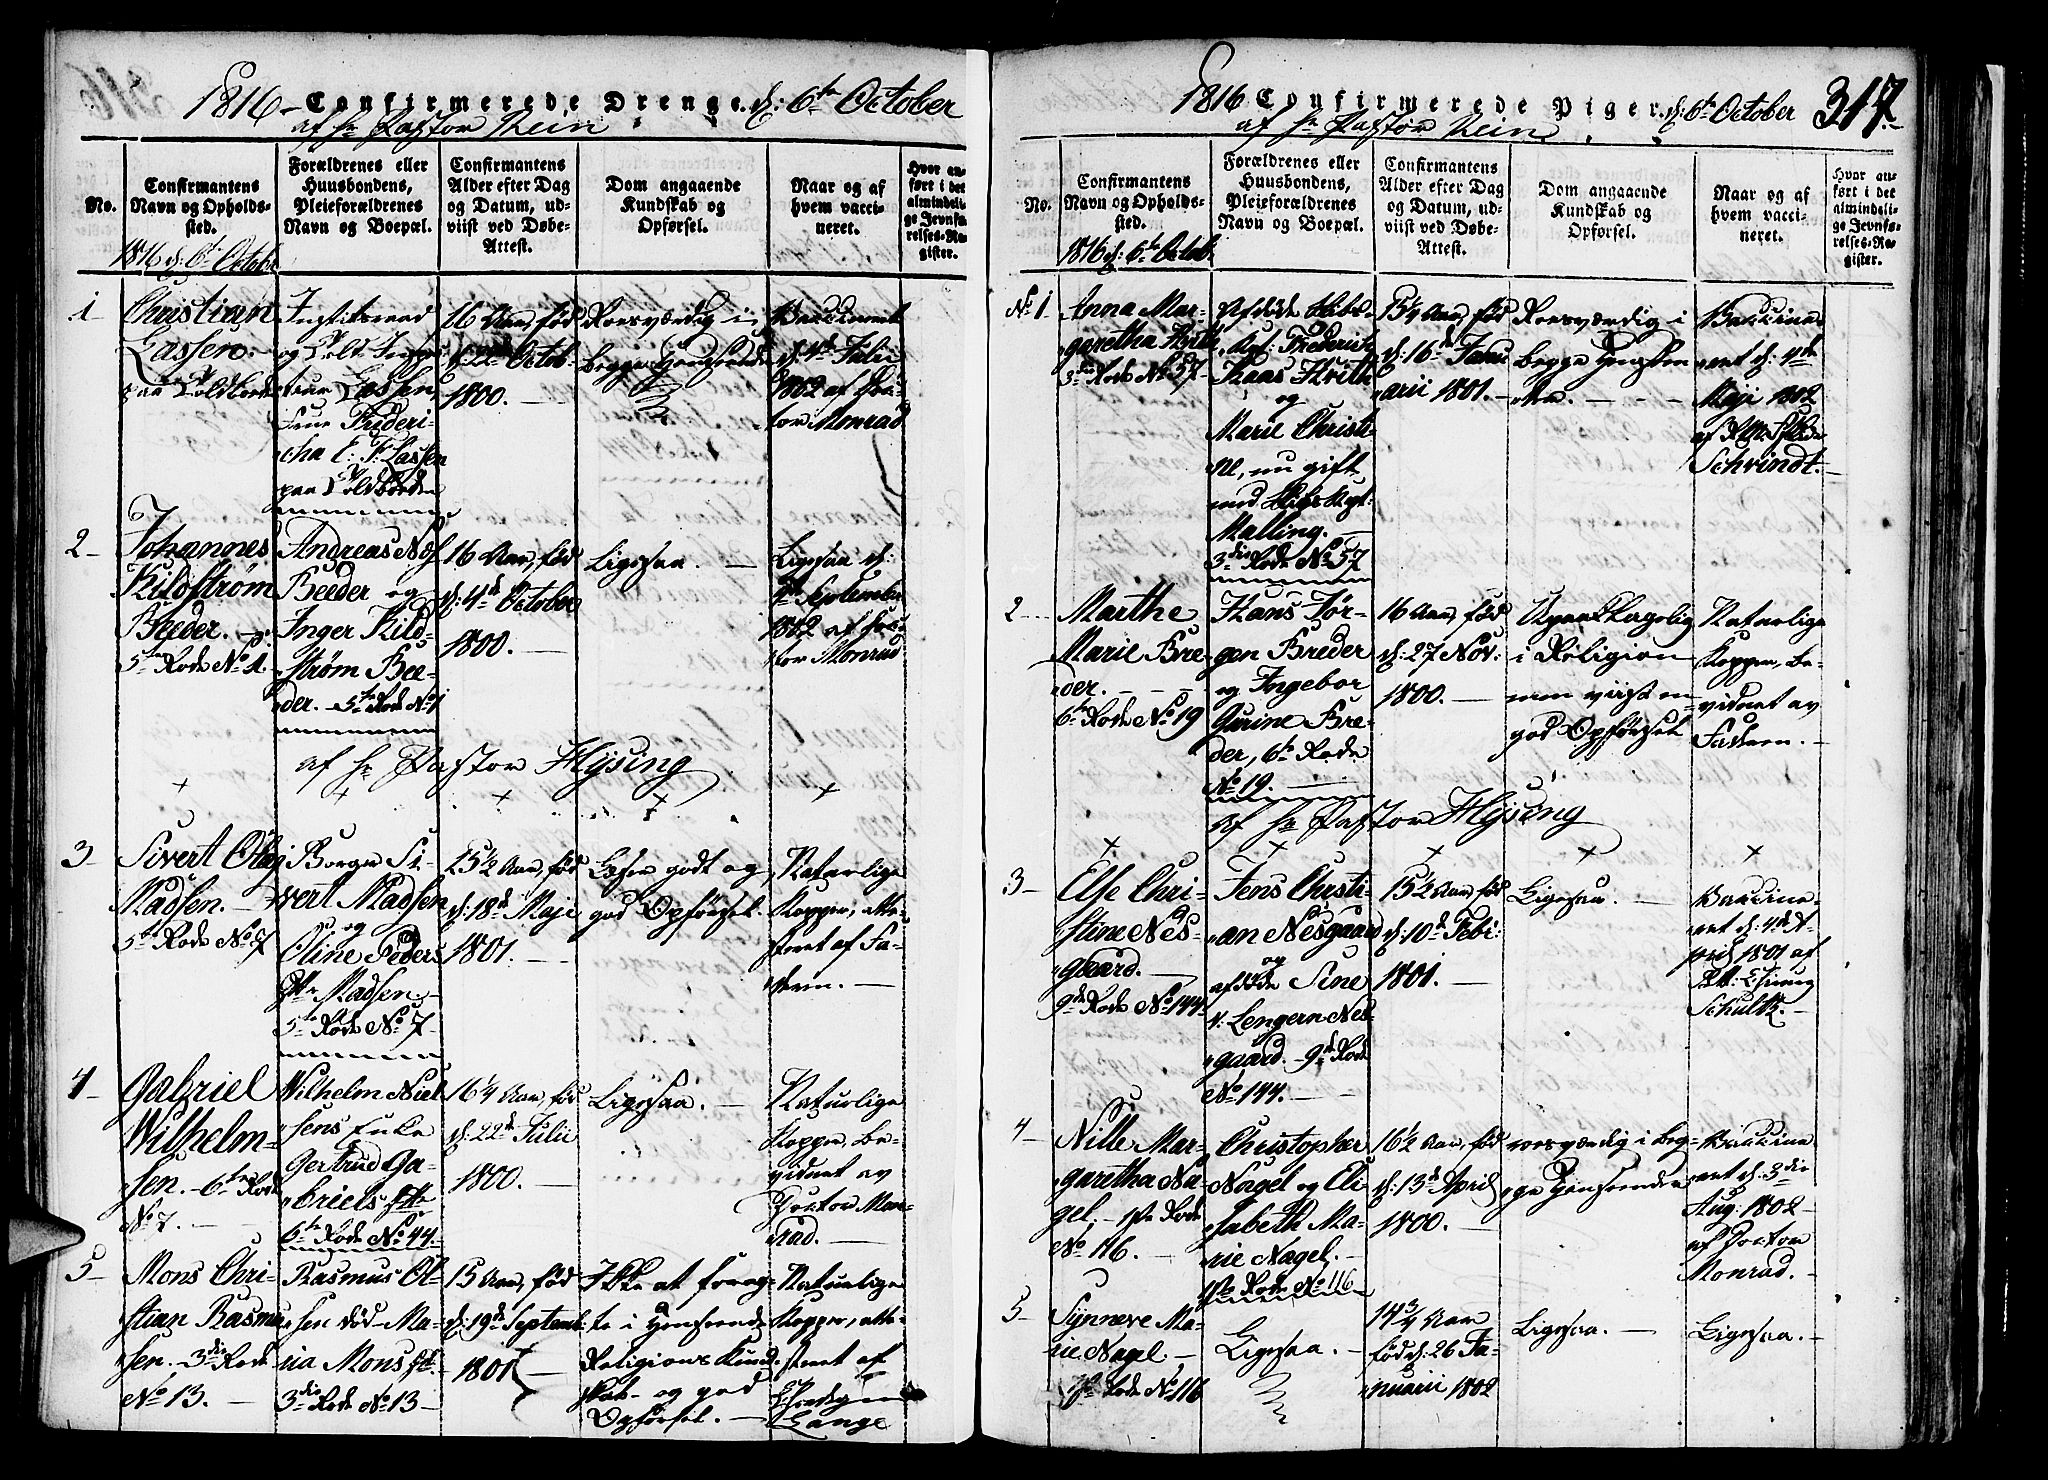 1816 Confirmerede Drenge d: 6te October
af Hr Pastor Rein
No.
Confirmantens
Navn og Opholds-
sted.
1816 d: 6te October
Forældrenes eller
Huusbondens,
Pleieforældrenes
Navn og Boepæl.
Confirmantens
Alder efter Dag
og Datum, ud-
viist ved Døbe-
Attest.
Dom angaaende
Kundskab og
Opførsel.
Naar og af
hvem vacci-
neret.
Hvor an-
ført i det
almindeli-
ge Jevnfø-
relses-Re-
gister.
1
Christian
Lassen
paa Toldboden
Justitsraad
og Told
Lassen
Frue Frideri-
cha E: F: Lassen
paa Toldboden
16 Aar, fød
d: 22de Octob:
1800. -
Roesværdig i
begge Henseende
Vaccineret
d: 4de Julii
1802 af Doc-
tor Monrad
2 -
Johannes
Kildstrøm
Beeder. -
5te Rode No 1.
Andreas
Beeder og
Inger Kild-
strøm Bee-
der. - 5te Rode No 1
16 Aar, fød
d: 4de October
1800. -
Ligesaa. -
Ligesaa d:
September
1802 af Doc-
tor Monrad
af Hr Pastor Hysing
3 -
Sivert Olai
Madsen. -
5te Rode No 7
Borger Si-
vert Madsen
og
Oline Peders
Madsen. -
5te Rode No 7 -
15 1/2 Aar, fød
d: 18de Maji
1801. -
Læser godt og
god Opførsel.
Naturlige
Kopper, atte-
steret af Fa-
deren. -
4 -
Gabriel
Wilhelm-
sen. - 6te Rode
No 7. -
Wilhelm Niel-
sens Enke
Gertrud Ga-
briels
6te Rode No 44. -
16 1/4 Aar, fød
d: 22de Julii
1800. -
Ligesaa. -
Naturlige
Kopper, be-
vidnet av
Doctor Mon-
rad. -
5 -
Mons Chri-
stian Rasmu-
sen. 3die Rode
No 13. -
Rasmus Ol-
sen død - Ma-
ria Mons
3die Rode No 13 -
15 Aar, fød
d: 19de Septemb
1801 -
Ikke at forag-
te i Henseende
Religions Kund-
skab - og god
Opførsel. -
Naturlige
Kopper, atte-
steret af
Lange
1816 Confirmerede Piger. d: 6te October 317.
af Hr Pastor Rein
No.
Confirmantens
Navn og Opholds-
sted.
1816 d: 6te Octob:
Forældrenes eller
Huusbondens,
Pleieforældrenes
Navn og Boepæl.
Confirmantens
Alder efter Dag
og Datum, ud-
viist ved Døbe-
Attest.
Dom angaaende
Kundskab og
Opførsel.
Naar og af
hvem vacci-
neret.
Hvor an-
ført i det
almindeli-
ge Jevnfø-
relses-Re-
gister.
No 1.
Anna Mar-
garetha
3die Rode No 57 -
Afdøde Skibs-
Frederich
Kaas
og
Marie Christi-
ne, nu gift
med Skibs
Malling. -
3die Rode No 57
15 3/4 Aar, fød
d: 16de Janu
arii 1801. -
Roesværdig i
begge Henseen
der. - - -
Vaccine-
ret d: 4de
Maji 1802
af
Schvindt. -
2 -
Marthe
Marie Bre-
der. - - -
6te Rode No 19
Hans Jør-
gen Breder
og Ingebor
Gurine Bre-
der, 6te Rode
No 19. -
16 Aar, fød
d: 27 Nov:
1800. -
Upaaklagelig
i Religion
men viist en
god Opførsel
Naturlige
Kopper, be-
vidnet av
Faderen. -
af Hr Pastor Hysing
3 -
Else Chri-
stine Nes-
gaard. -
9de Rode No 144.
Jens Christi-
an Nesgaard
og
afdøde Sine
v: Lengern Nes-
gaard. - 9de Rode
No 144. -
15 1/2 Aar, fød
d: 10de Febr:
1801. -
Ligesaa. -
Vaccine-
ret d: 4de A-
pril 1801 af
Schultz. -
4 -
Nille Mar-
garetha Na-
gel. - 1ste Rode
No 116. -
Christopher
Nagel og Eli
sabeth Ma-
rie Nagel. -
1ste Rode No 116
16 1/2 Aar, fød
d: 13de April
1800. -
roesværdig i beg-
ge Henseender
Vaccine
ret d: 3die
Aug: 1802 -
af Doctor
Monrad. -
5 -
Synneve Ma-
rie Nagel. -
1ste Rode No 116
Ligesaa. -
14 3/4 Aar
fød d: 26 Ja-
nuarii 1802
Ligesaa. -
Ligesaa. -